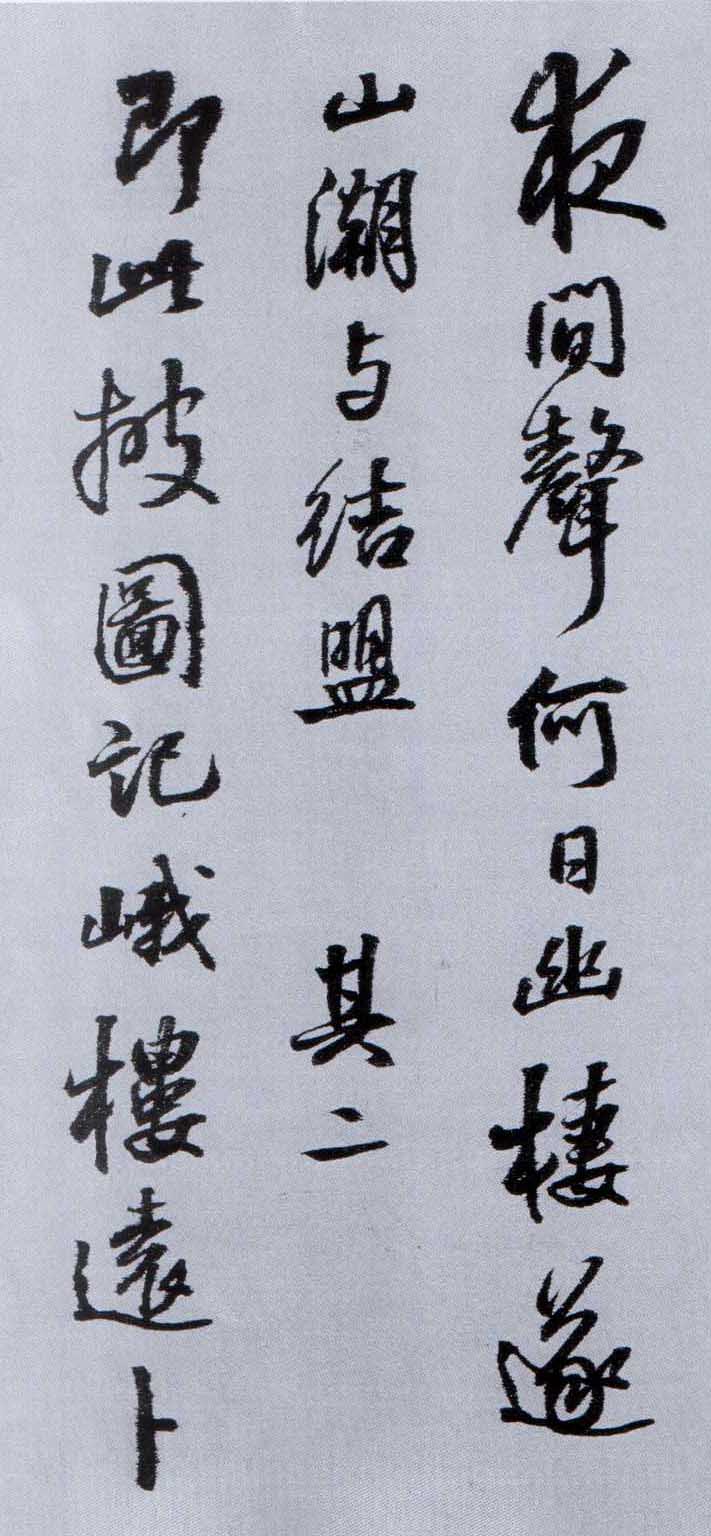 夜間聲何日幽棲遂
山湖与结盟 其二
即此披圖記峨樓遠卜